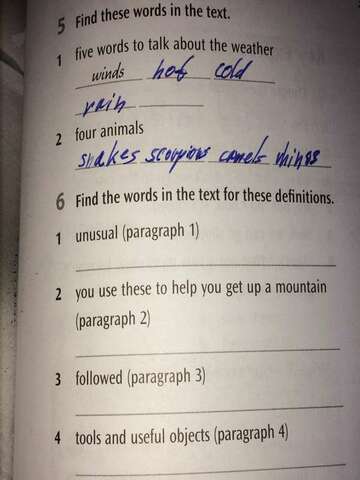 5 Find these words in the text.
1 five words to talk about the weather
winds hot cold
rain
2 four animals
snakes scorpions camels rhinos
6 Find the words in the text for these definitions.
1 unusual (paragraph 1)
2 you use these to help you get up a mountain
(paragraph 2)
3 followed (paragraph 3)
4 tools and useful objects (paragraph 4)